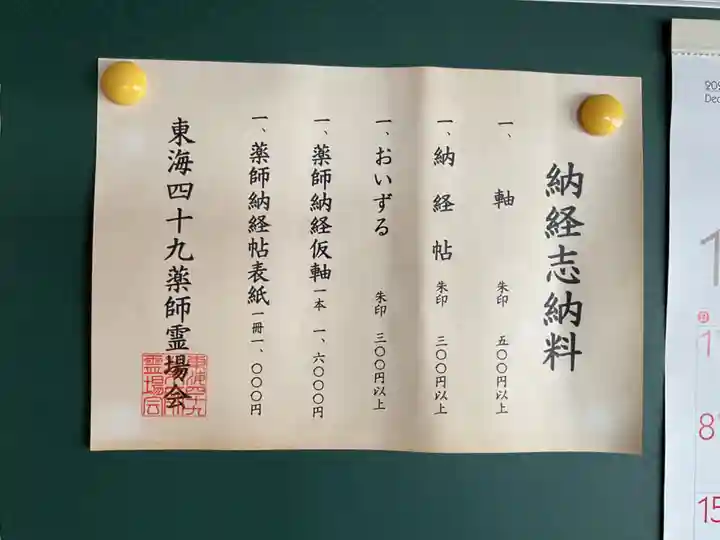 納経志納料
一、軸 朱印 五〇〇円以上
一、納経帖 朱印 三〇〇円以上
一、おいずる 朱印 三〇〇円以上
一、薬師納経仮軸 一本 一、六〇〇〇円
一、薬師納経帖表紙 一冊 一、〇〇〇円
東海四十九薬師霊場会
東海四十九
霊場会
Dec
1
8
15